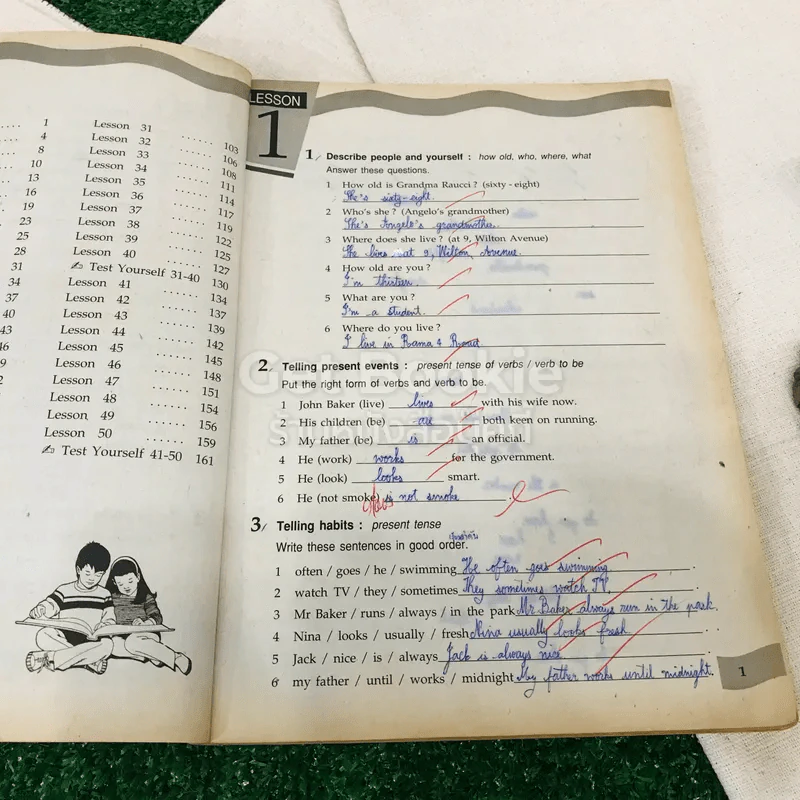 1
4
8
10
13
16
19
23
25
28
31
34
37
40
43
46
Lesson 31 ...... 103
Lesson 32 106
Lesson 33 108
Lesson 34 111
Lesson 35 114
Lesson 36 117
Lesson 37 119
Lesson 38 122
Lesson 39 125
Lesson 40 127
Test Yourself 31-40 130
Lesson 41 134
Lesson 42 137
Lesson 43 139
Lesson 44 142
Lesson 45 145
Lesson 46 148
Lesson 47 151
Lesson 48 154
Lesson 49 156
Lesson 50 159
Test Yourself 41-50 161
LESSON
1
1 Describe people and yourself : how old, who, where, what
Answer these questions.
1 How old is Grandma Raucci ? (sixty - eight)
She's sixty-eight.
2 Who's she ? (Angelo's grandmother)
She's Angelo's grandmother.
3 Where does she live ? (at 9, Wilton Avenue)
She lives at 9, Wilton, Avenue.
4 How old are you ?
I'm thirteen.
5 What are you ?
I'm a student.
6 Where do you live ?
I live in Rama 4 Road
2 Telling present events : present tense of verbs / verb to be
Put the right form of verbs and verb to be.
1 John Baker (live) lives with his wife now.
2 His children (be) are both keen on running.
3 My father (be) is an official.
4 He (work) works for the government.
5 He (look) looks smart.
6 He (not smoke) is not smoke .
does
3 Telling habits : present tense
Write these sentences in good order.
1 often / goes / he / swimming He often goes swimming
2 watch TV / they / sometimes They sometimes watch TV.
3 Mr Baker / runs / always / in the park Mr. Baker always run in the park.
4 Nina / looks / usually / fresh Nina usually looks fresh .
5 Jack / nice / is / always Jack is always nice .
6 my father / until / works / midnight My father works until midnight.
1
Get Bookie